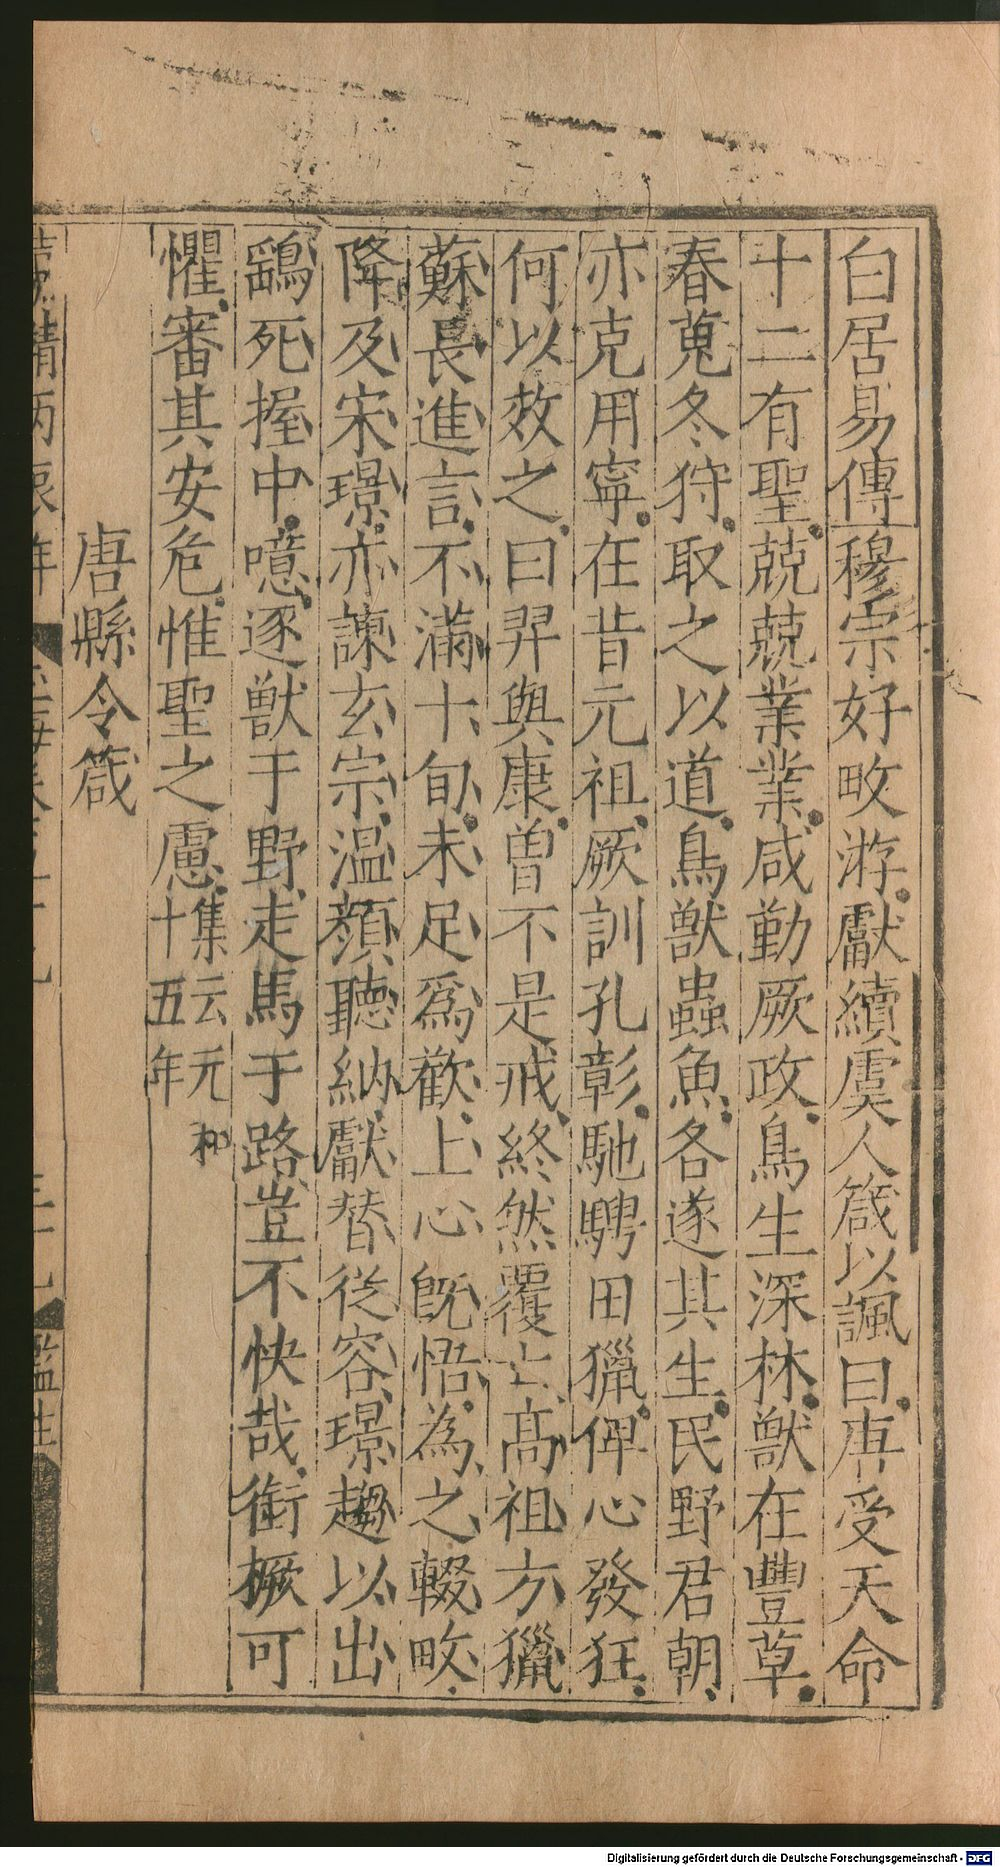 白居易傳穆宗好畋游獻續虞人箴以諷曰唐受天命
十二有聖兢兢業業咸勤厥政鳥生深林獸在豐草
春蒐冬狩取之以道鳥獸蟲魚各遂其生民野君朝
亦克用寧在昔玄祖厥訓孔彰馳騁田獵俾心發狂
何以效之曰羿與康曾不是戒終然覆亡高祖方獵
蘇長進言不滿十旬未足爲歡上心旣悟為之輟畋
降及宋璟亦諫玄宗温顔聽納獻替從容璟趨以出
鷂死握中噫逐獸于野走馬于路豈不快哉銜橛可
懼審其安危惟聖之慮集云元和十五年
唐縣令箴
監生
Digitalisierung gefördert durch die Deutsche Forschungsgemeinschaft - DFG